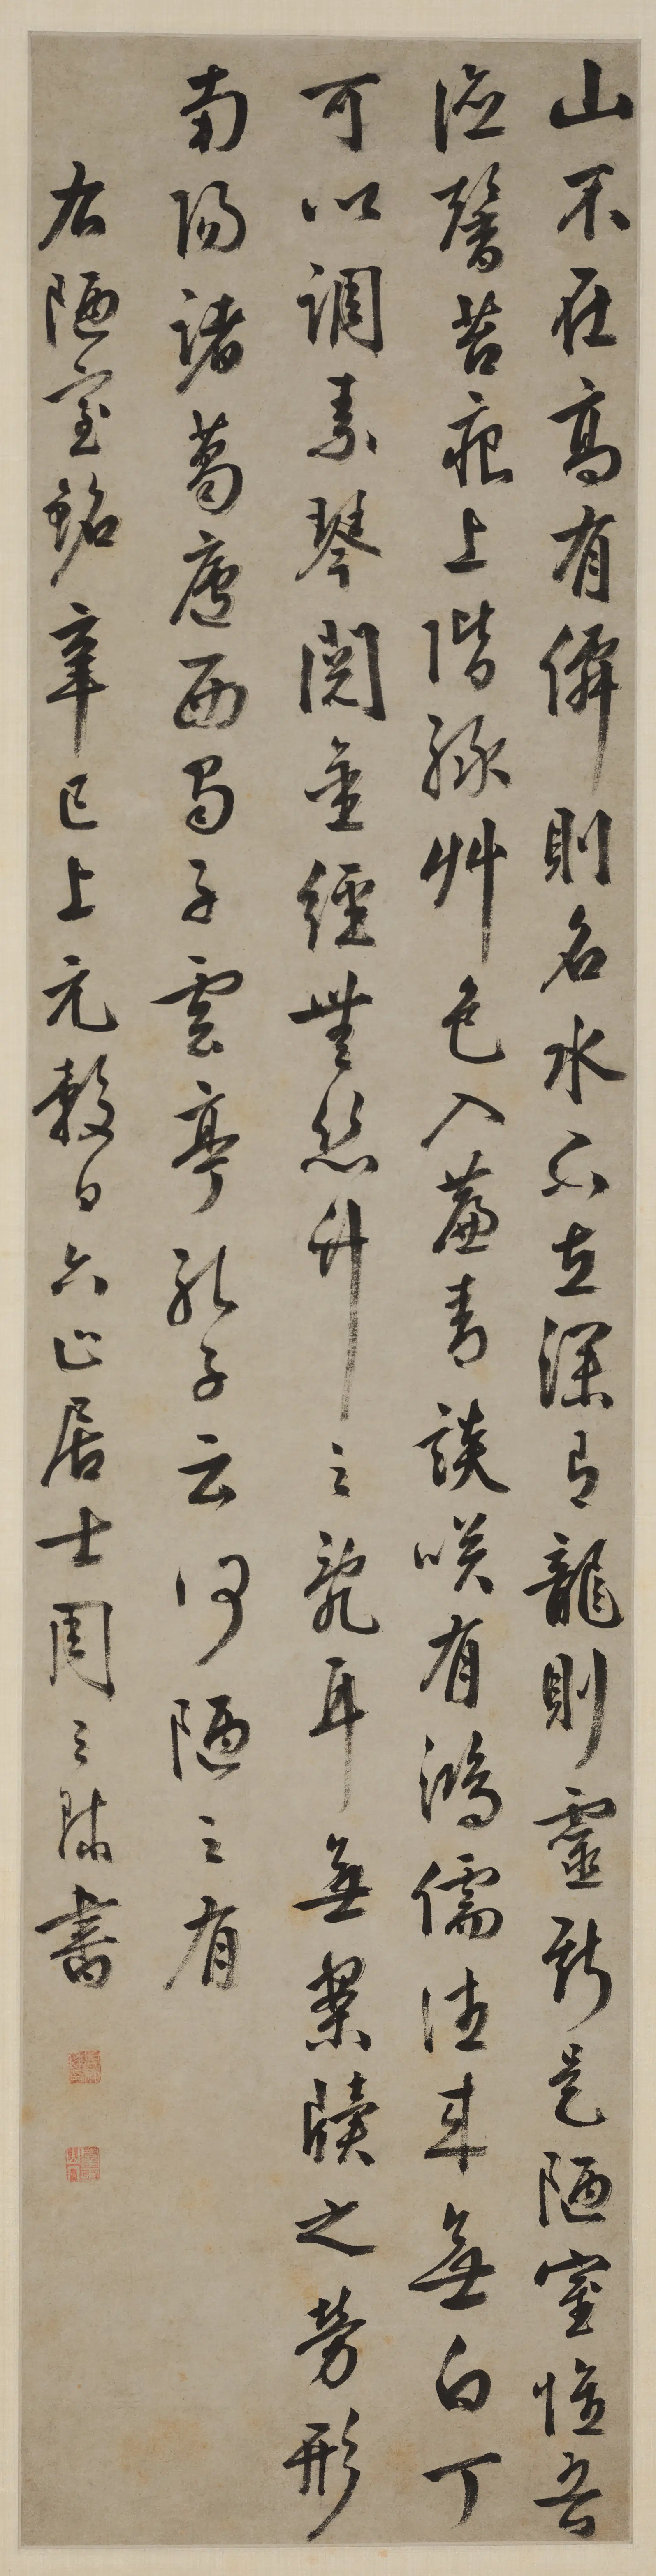 山不在高有僊則名水不在深有龍則靈斯是陋室惟吾
德馨苔痕上階綠艸色入簾青談咲有鴻儒往来無白丁
可以調素琴閱金經無絲竹之亂耳無案牘之勞形
南陽諸葛廬西蜀子雲亭孔子云何陋之有
右陋室銘辛巳上元穀日六止居士周之
書